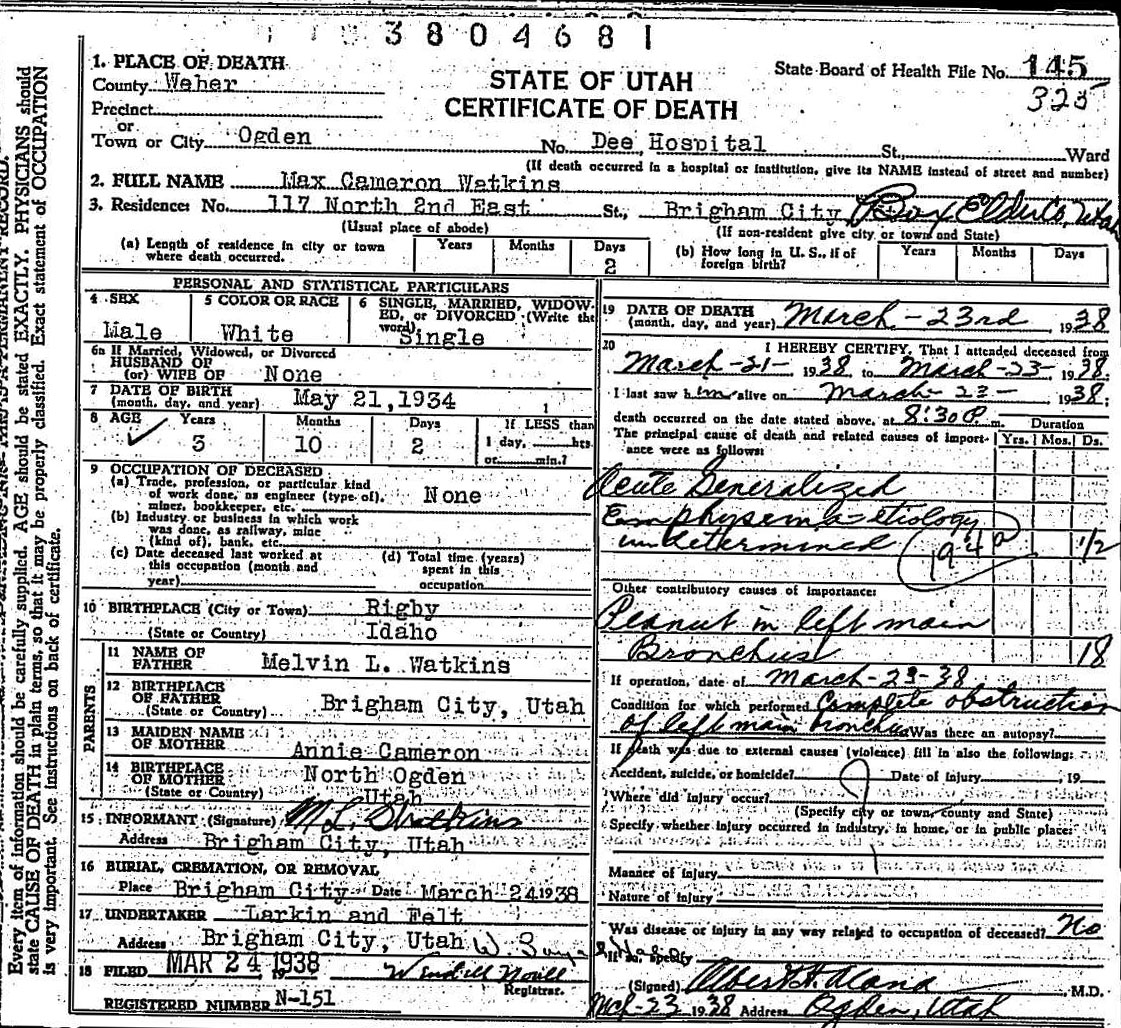 3804681
1. PLACE OF DEATH
County Weber
STATE OF UTAH
CERTIFICATE OF DEATH
State Board of Health File No. 145
325
Precinct
or
Town or City Ogden No. Dee Hospital St., Ward
(If death occurred in a hospital or institution, give its NAME instead of street and number)
2. FULL NAME Max Cameron Watkins
3. Residence: No. 117 North 2nd East St., Brigham City Box Elder Co, Utah
(Usual place of abode) (If non-resident give city or town and State)
(a) Length of residence in city or town where death occurred. Years Months Days 2
(b) How long in U. S., if of foreign birth? Years Months Days
PERSONAL AND STATISTICAL PARTICULARS
4 SEX Male
5 COLOR OR RACE White
6 SINGLE, MARRIED, WIDOWED, or DIVORCED (Write the word) Single
6a If Married, Widowed, or Divorced
HUSBAND OF
(or) WIFE OF None
7 DATE OF BIRTH
(month, day, and year) May 21,1934
8 AGE Years 3 Months 10 Days 2
If LESS than
1 day, hrs.
or min.?
9 OCCUPATION OF DECEASED
(a) Trade, profession, or particular kind
of work done, as engineer (type of),
miner, bookkeeper, etc. None
(b) Industry or business in which work
was done, as railway, mine
(kind of), bank, etc.
(c) Date deceased last worked at
this occupation (month and
year)
(d) Total time (years)
spent in this
occupation
10 BIRTHPLACE (City or Town) Rigby
(State or Country) Idaho
PARENTS
11 NAME OF
FATHER Melvin L. Watkins
12 BIRTHPLACE
OF FATHER
(State or Country) Brigham City, Utah
13 MAIDEN NAME
OF MOTHER Annie Cameron
14 BIRTHPLACE
OF MOTHER North Ogden
(State or Country) Utah
15 INFORMANT (Signature) M L Watkins
Address Brigham City, Utah
16 BURIAL, CREMATION, OR REMOVAL
Place Brigham City Date March 24 1938
17 UNDERTAKER Larkin and Felt
Address Brigham City, Utah
18 FILED MAR 24 1938
Registrar.
REGISTERED NUMBER N-151
19 DATE OF DEATH
(month, day, and year) March-23rd, 1938
20 I HEREBY CERTIFY, That I attended deceased from
March-21- 1938 to March-23-, 1938.
I last saw him alive on March 23-, 1938;
death occurred on the date stated above, at 8:30 P. m.
Duration
Yrs. Mos. Ds.
The principal cause of death and related causes of importance were as follows:
Acute Generalized
Emphysema-etiology
undetermined 1/2
194a
Other contributory causes of importance:
Peanut in left main
Bronchus 18
If operation, date of March-23-38
Condition for which performed Complete obstruction
of left main bronchus Was there an autopsy?
If death was due to external causes (violence) fill in also the following:
Accident, suicide, or homicide? Date of injury , 19
Where did injury occur?
(Specify city or town, county and State)
Specify whether injury occurred in industry, in home, or in public place:
Manner of injury
Nature of injury
Was disease or injury in any way related to occupation of deceased? No
If so, specify
(Signed) , M.D.
Mch-23 1938 Address Ogden, Utah
Every item of information should be carefully supplied. AGE should be stated EXACTLY. PHYSICIANS should
state CAUSE OF DEATH in plain terms, so that it may be properly classified. Exact statement of OCCUPATION
is very important. See instructions on back of certificate.